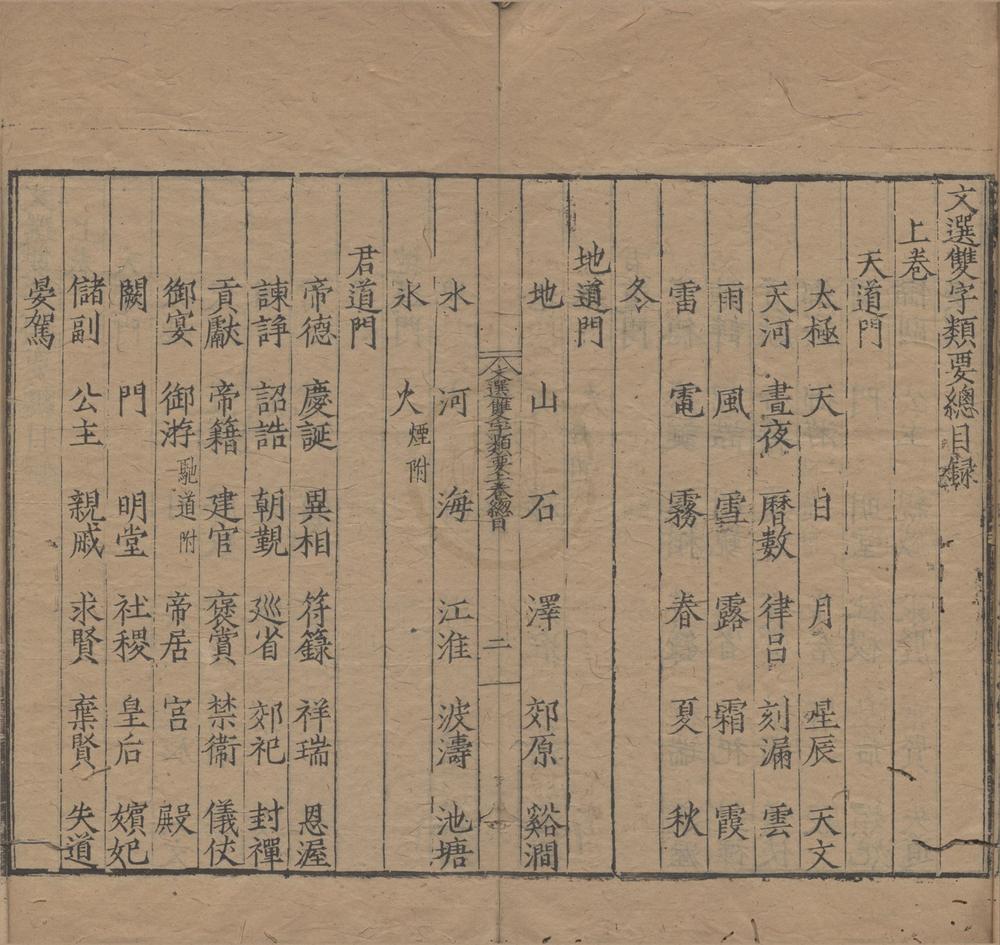 文選雙字類要總目録
上卷
天道門
太極 天 日 月 星辰 天文
天河 晝夜 曆數 律呂 刻漏 雲
雨 風 雪 露 霜 霞
雷 電 霧 春 夏 秋
冬
地道門
地 山 石 澤 郊原 谿澗
文選雙字類要上卷總目 二
水 河 海 江淮 波濤 池塘
氷 火煙附
君道門
帝德 慶誕 異相 符籙 祥瑞 恩渥
諫諍 詔誥 朝覲 廵省 郊祀 封禪
貢獻 帝籍 建官 褒賞 禁衞 儀仗
御宴 御游馳道附 帝居 宫 殿
闕 門 明堂 社稷 皇后 嬪妃
儲副 公主 親戚 求賢 棄賢 失道
晏駕